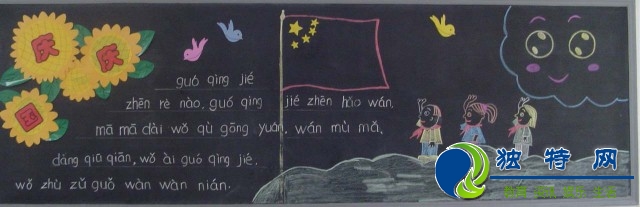 庆
庆
国
guó qìng jié
zhēn rè nào, guó qìng jié zhēn hǎo wán,
mā mā dài wǒ qù gōng yuán, wán mù mǎ,
dàng qiū qiān, wǒ ài guó qìng jié,
wǒ zhù zǔ guó wàn wàn nián.
独特网